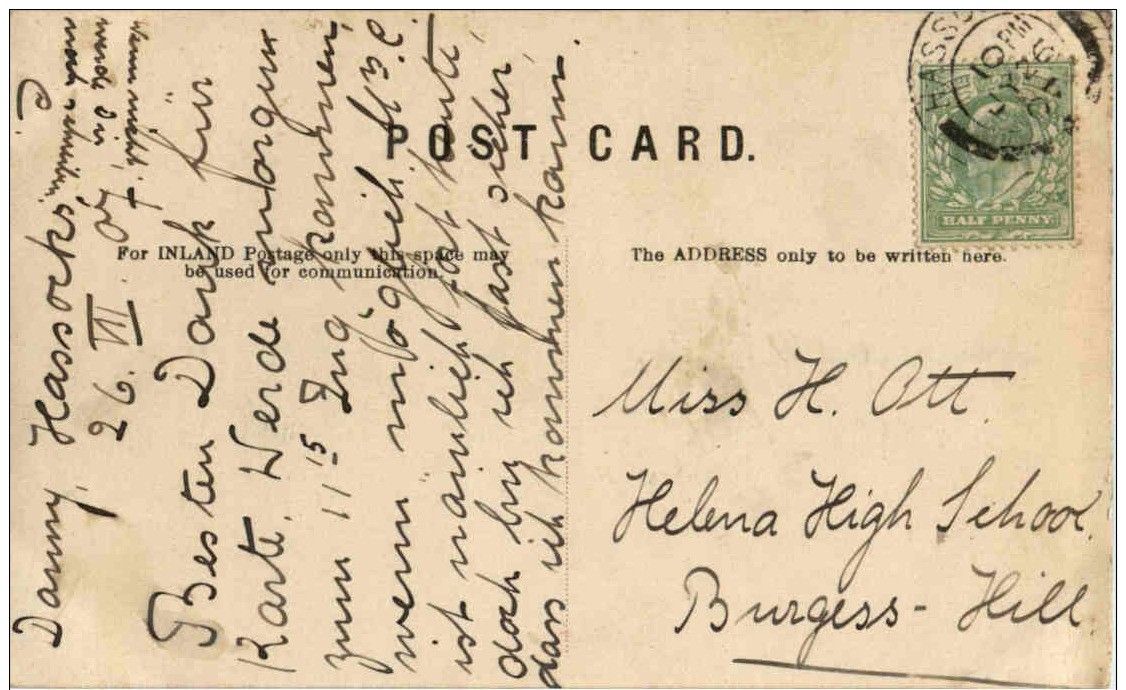 POST CARD.
For INLAND Postage only this space may
be used for communication.
The ADDRESS only to be written here.
HALF PENNY
Danny, Hassocks,
26. VII. 07
Besten Dank für
Karte. Werde morgen
zum 11 15 Zug kommen,
wenn möglich. Mrs C.
ist nämlich fort heute,
doch bin ich fast sicher,
dass ich kommen kann.
Miss H. Ott.
Helena High School
Burgess-Hill.